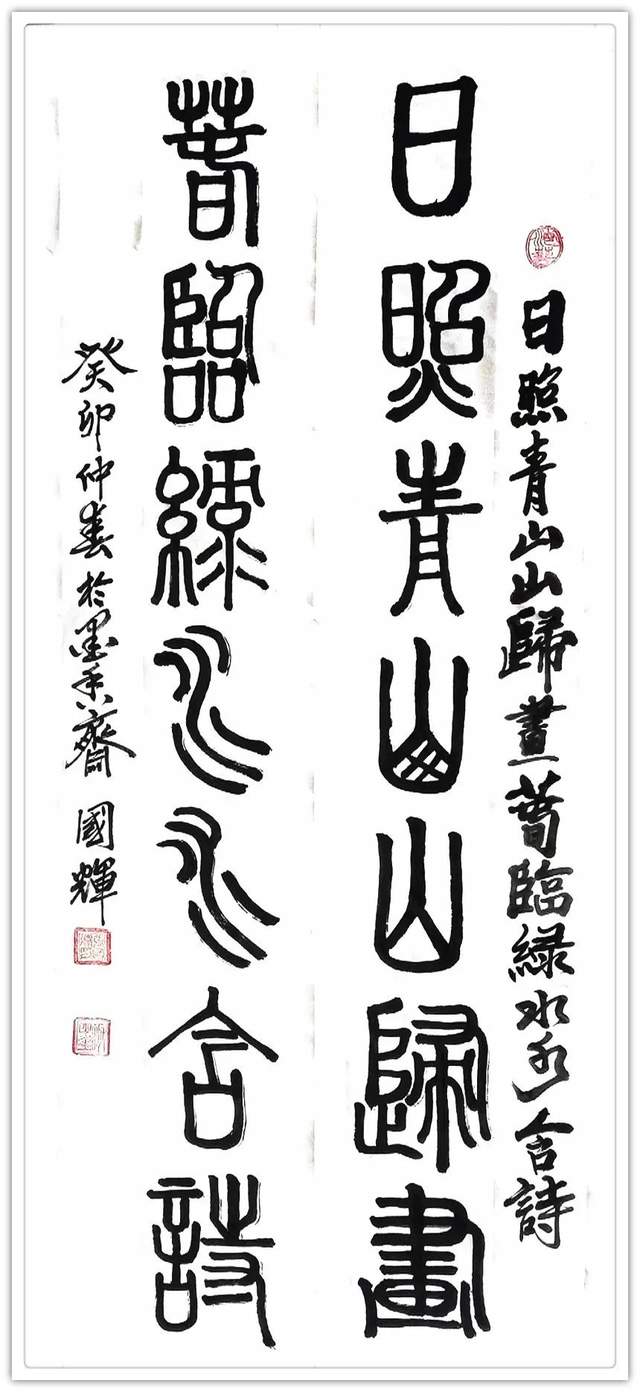 日照青山山歸畫萅臨綠水水含詩
日照青山山歸畫
萅臨綠水水含詩
癸卯仲春於墨香齋 國輝